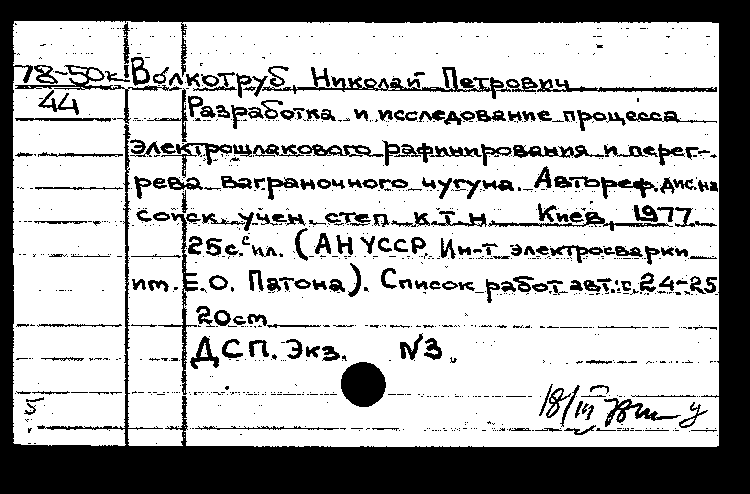 78-50к Волкотруб, Николай Петрович
44 Разработка и исследование процесса
электрошлакового рафинирования и перег-
рева ваграночного чугуна. Автореф. дис. на
соиск. учен. степ. к.т.н. Киев, 1977.
25с. с ил. (АН УССР. Ин-т электросварки
им. Е.О. Патона). Список работ авт.: с. 24-25
20см
ДСП. Экз. №3.
5
18/III